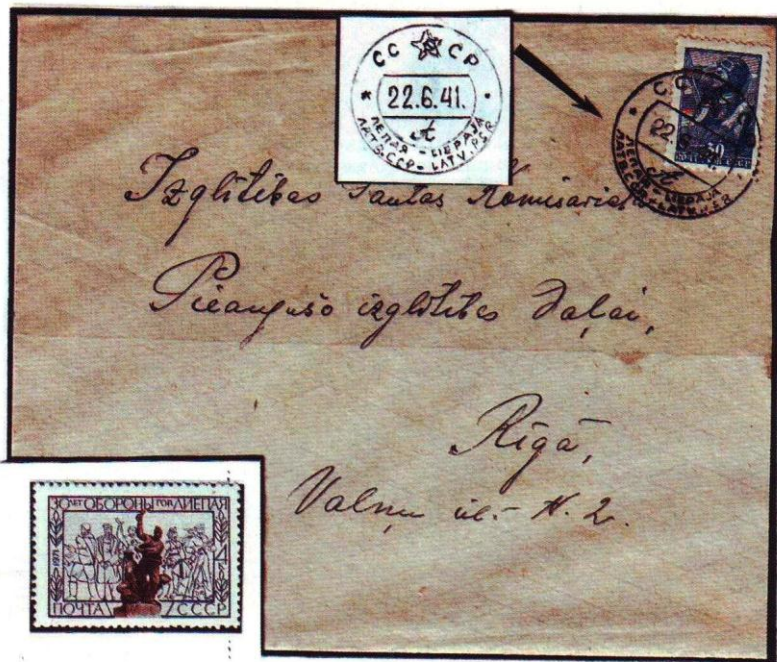 СС СР
22.6.41.
A
ЛЕПАЯ - LIEPAJA
ЛАТВ.ССР - LATV.PSR
СС
22.6
A
ЛЕПАЯ - LIEPAJA
ЛАТВ.ССР - LATV.PSR
30
Izglītības Tautas Komisariāta
Pieaugušo izglītības daļai,
Rīgā,
Vaļņu iel. N. 2.
30 ЛЕТ ОБОРОНЫ ГОР. ЛИЕПАЯ
1971
4
ПОЧТА СССР